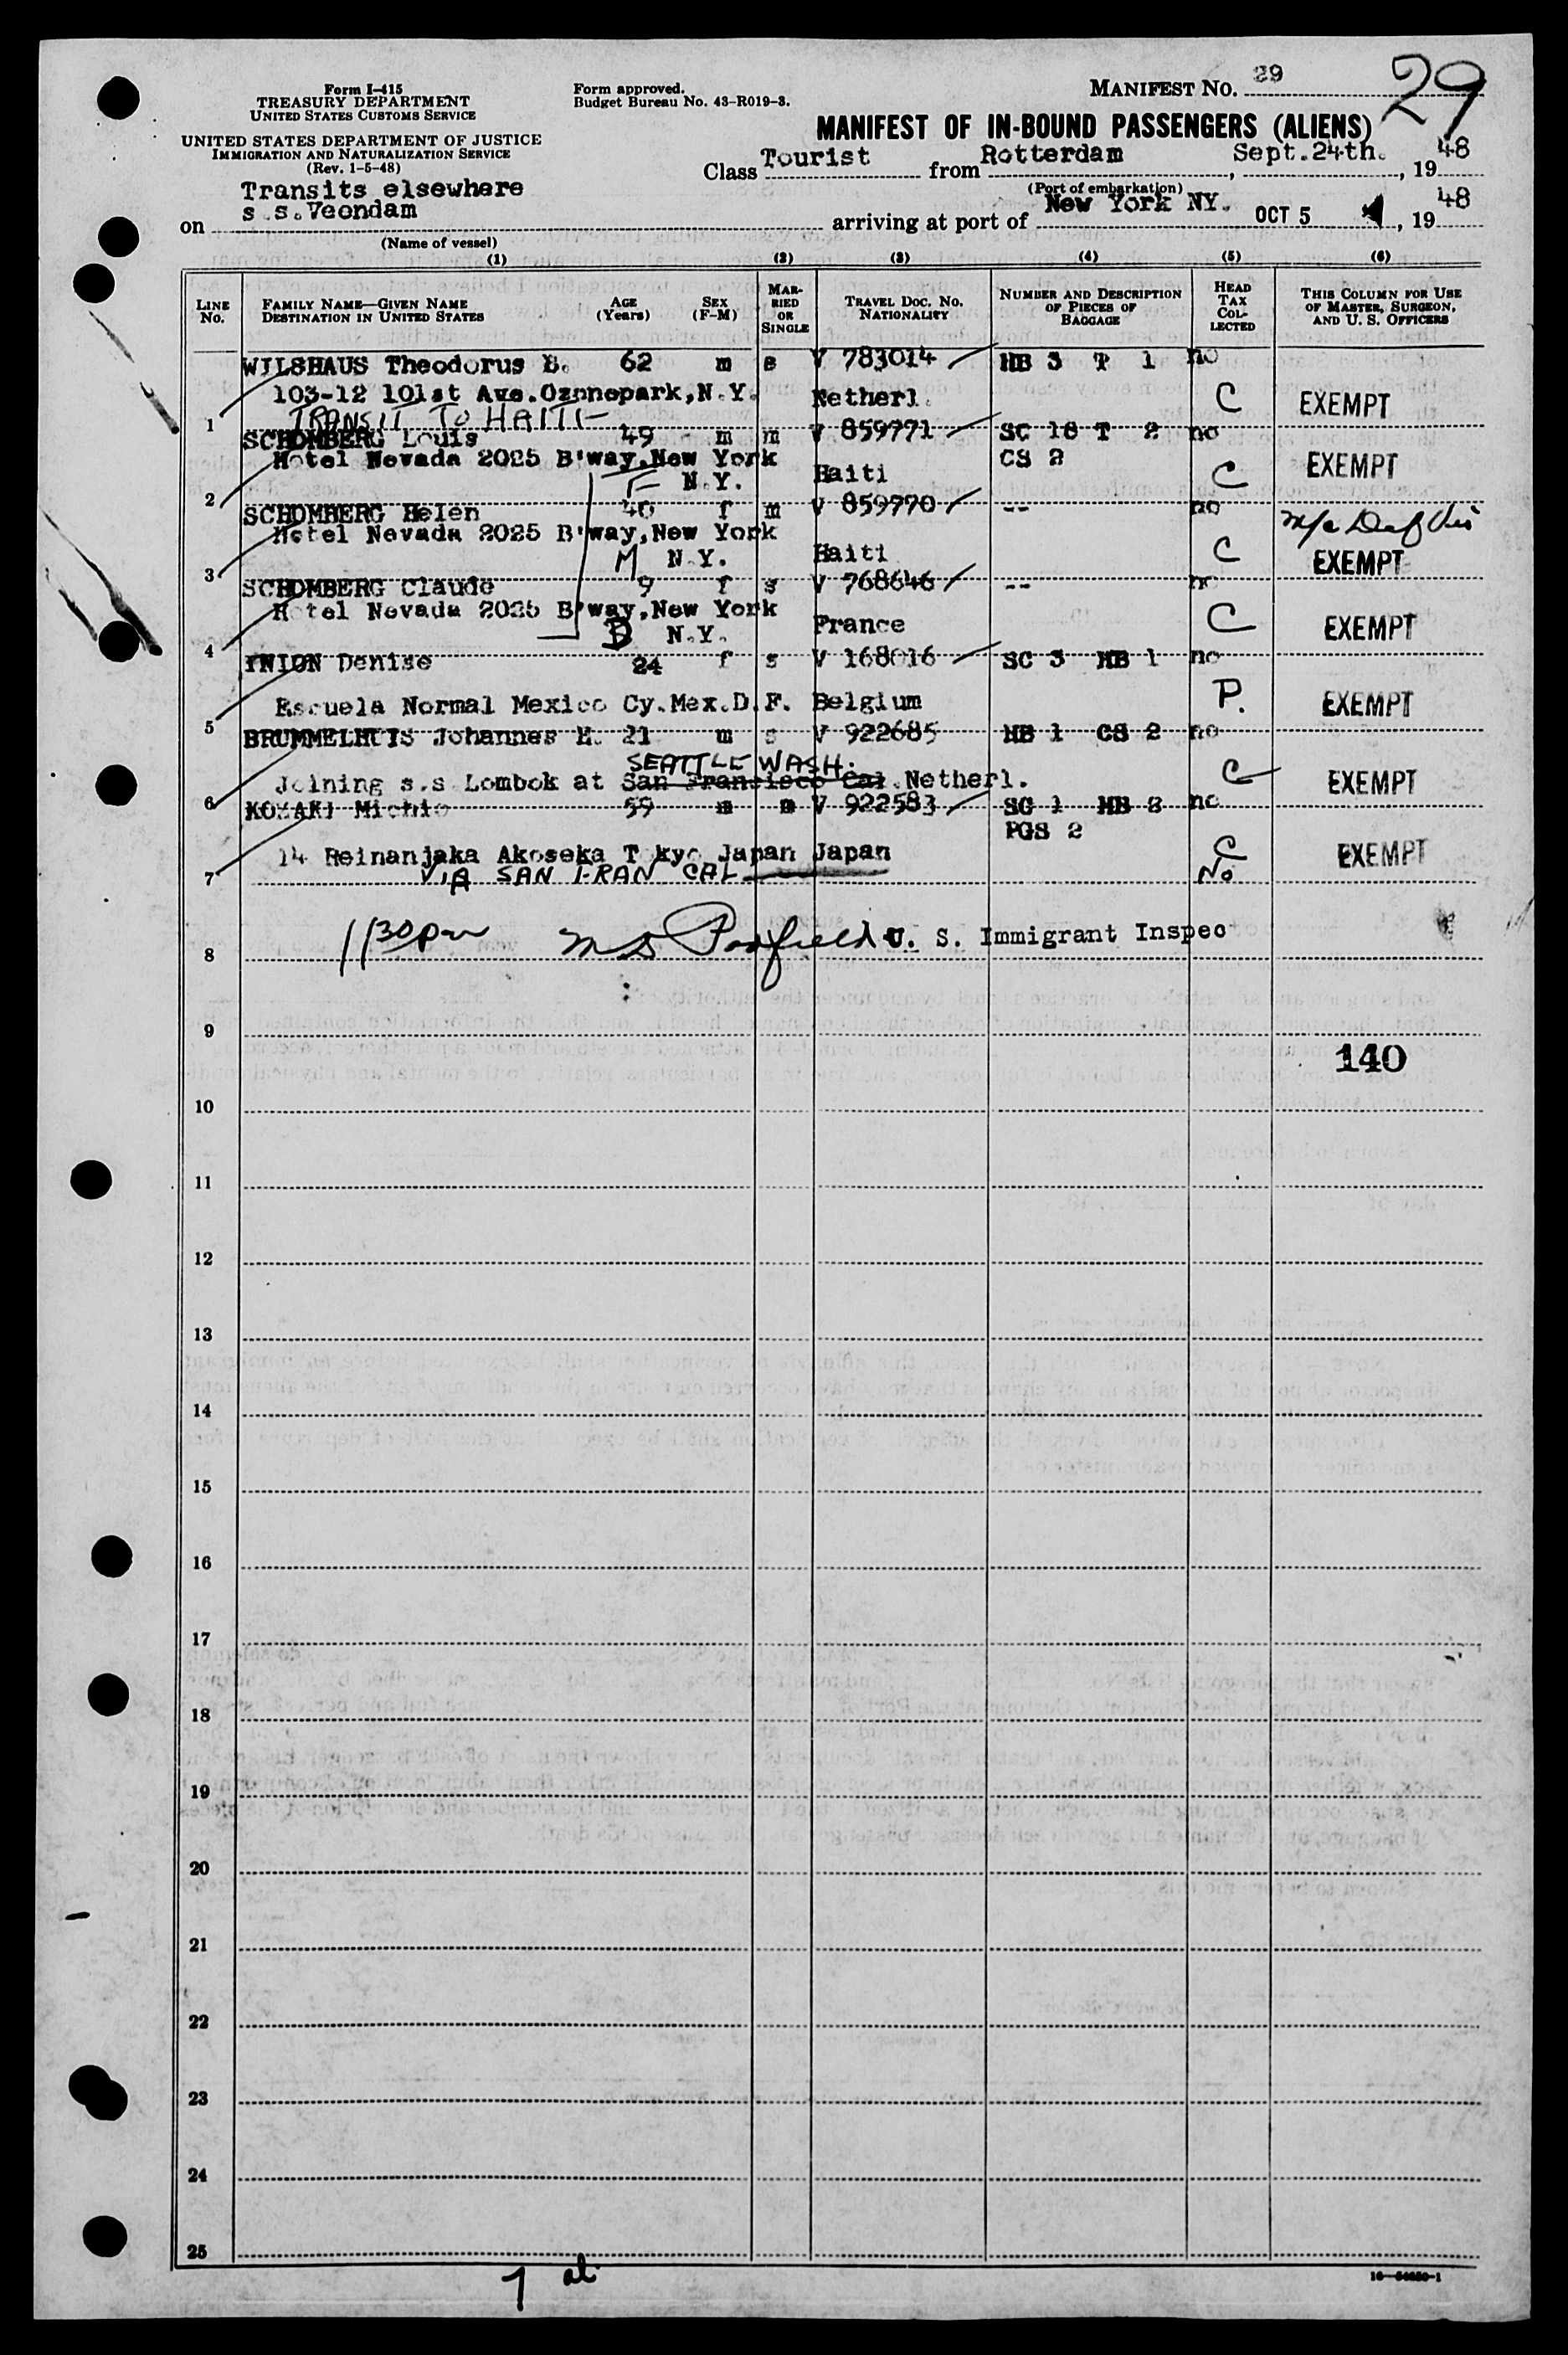 Form I-415
TREASURY DEPARTMENT
UNITED STATES CUSTOMS SERVICE
UNITED STATES DEPARTMENT OF JUSTICE
IMMIGRATION AND NATURALIZATION SERVICE
(Rev. 1-5-48)
Form approved.
Budget Bureau No. 43-R019-3.
MANIFEST NO. 29
29
MANIFEST OF IN-BOUND PASSENGERS (ALIENS)
Class Tourist from Rotterdam, Sept.24th., 1948
(Port of embarkation)
Transits elsewhere
on s.s.Veondam arriving at port of New York NY. OCT 5, 1948
(Name of vessel)
(1) (2) (3) (4) (5) (6)
LINE No. FAMILY NAME—GIVEN NAME DESTINATION IN UNITED STATES AGE (Years) SEX (F-M) MARRIED OR SINGLE TRAVEL DOC. NO. NATIONALITY NUMBER AND DESCRIPTION OF PIECES OF BAGGAGE HEAD TAX COLLECTED THIS COLUMN FOR USE OF MASTER, SURGEON, AND U. S. OFFICERS
WILSHAUS Theodorus B. 62 m s V 783014 HB 3 T 1 no
103-12 101st Ave.Ozonepark,N.Y. Netherl. C EXEMPT
1 TRANSIT TO HAITI
SCHOMBERG Louis 49 m m V 859771 SC 18 T 2 no
Hotel Nevada 2025 B'way,New York CS 2 EXEMPT
2 F N.Y. Haiti C
SCHOMBERG Helen 40 f m V 859770 -- no
Hotel Nevada 2025 B'way,New York
3 M N.Y. Haiti C EXEMPT
SCHOMBERG Claude 9 f s V 768646 -- no
Hotel Nevada 2025 B'way,New York
4 D N.Y. France C EXEMPT
INION Denise 24 f s V 168016 SC 3 HB 1 no
5 Escuela Normal Mexico Cy.Mex.D.F. Belgium P. EXEMPT
BRUMMELHUIS Johannes H. 21 m s V 922685 HB 1 CS 2 no
SEATTLE WASH.
6 Joining s.s Lombok at San Francisco Cal. Netherl. C EXEMPT
KOZAKI Michio 59 m m V 922583 SC 1 HB 2 no
PGS 2
14 Reinanjaka Akoseka Tokyo Japan Japan C EXEMPT
7 VIA SAN FRAN CAL No
8 1130pm U. S. Immigrant Inspec
9
140
10
11
12
13
14
15
16
17
18
19
20
21
22
23
24
25
7 al